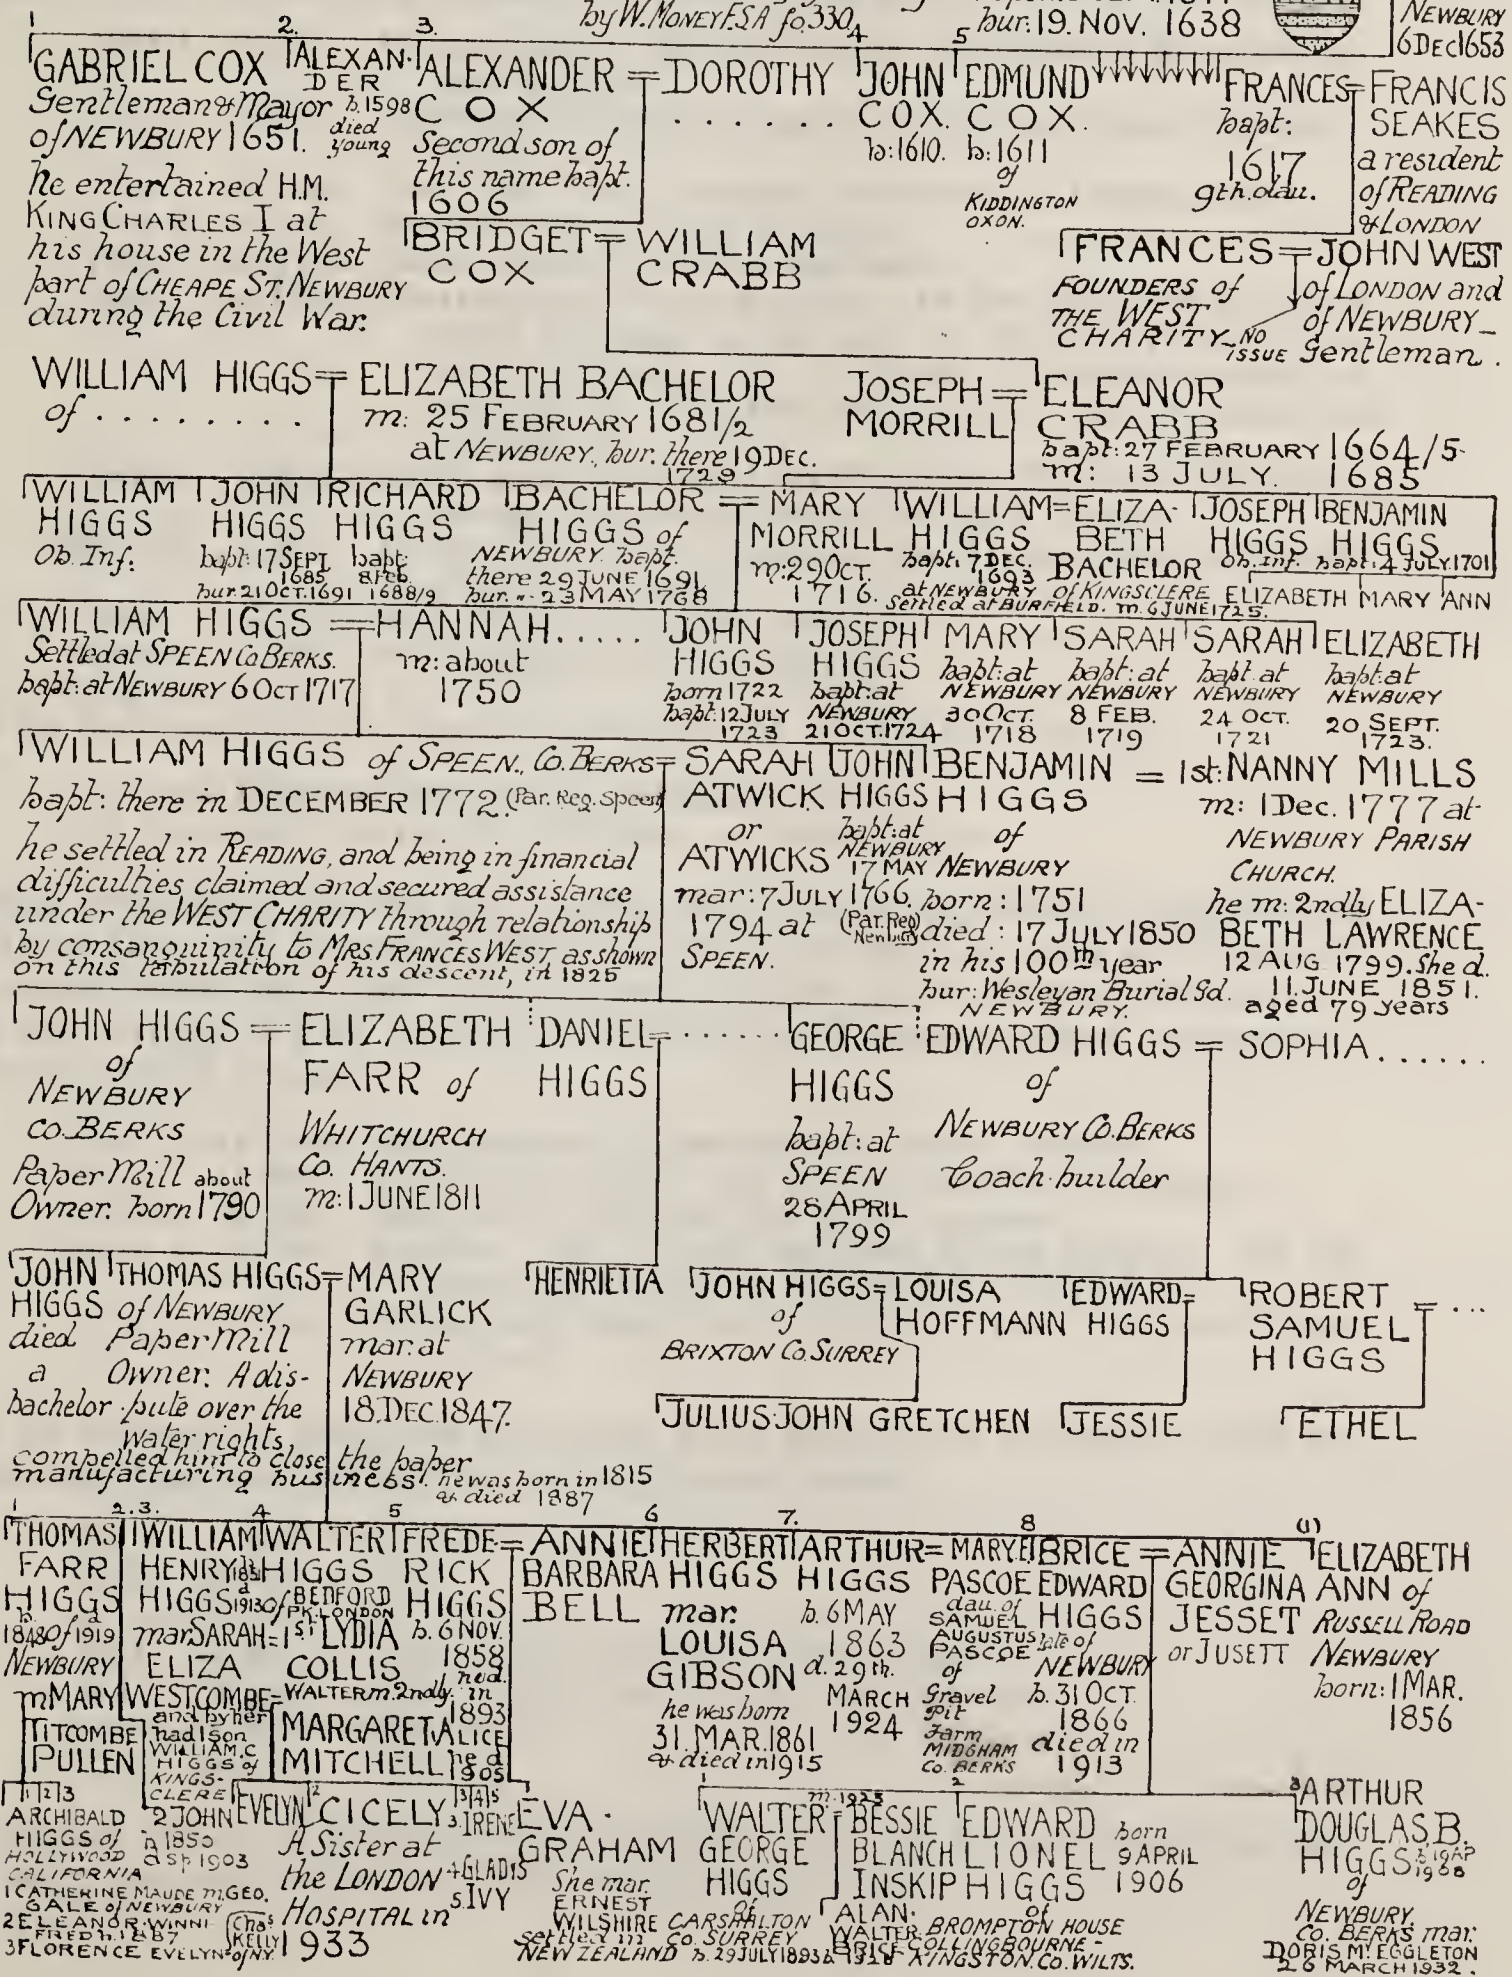 by W. MONEY F.S.A fo.330
bur: 19. NOV. 1638
NEWBURY
6 DEC 1653
1. 2. 3. 4 5
GABRIEL COX
Gentleman & Mayor
of NEWBURY 1651.
he entertained H.M.
KING CHARLES I at
his house in the West
part of CHEAPE ST. NEWBURY
during the Civil War.
ALEXAN-
DER
b. 1598
died
young
ALEXANDER = DOROTHY
COX . . . . . . .
Second son of
this name bapt.
1606
JOHN
COX.
b: 1610.
EDMUND
COX.
b: 1611
of
KIDDINGTON
OXON.
FRANCES = FRANCIS
bapt:
1617
9th. dau.
SEAKES
a resident
of READING
& LONDON
BRIDGET = WILLIAM
COX CRABB
FRANCES = JOHN WEST
FOUNDERS of
THE WEST
CHARITY
NO
ISSUE
of LONDON and
of NEWBURY_
Gentleman.
WILLIAM HIGGS = ELIZABETH BACHELOR
of . . . . . . . .
m: 25 FEBRUARY 1681/2
at NEWBURY, bur. there 19 DEC.
1729
JOSEPH = ELEANOR
MORRILL CRABB
bapt: 27 FEBRUARY 1664/5
m: 13 JULY. 1685
WILLIAM
HIGGS
Ob. Inf:
JOHN
HIGGS
bapt: 17 SEPT
1685
bur. 21 OCT. 1691
RICHARD
HIGGS
bapt:
8 Feb.
1688/9
BACHELOR = MARY
HIGGS of
NEWBURY. bapt.
there 29 JUNE 1691
bur. " 23 MAY 1768
MORRILL
m: 29 OCT.
1716.
WILLIAM = ELIZA-
HIGGS BETH
bapt: 7 DEC.
1693
at NEWBURY
BACHELOR
of KINGSCLERE
settled at BURFIELD. m. 6 JUNE 1725.
JOSEPH
HIGGS
Ob. Inf.
BENJAMIN
HIGGS
bapt: 4 JULY. 1701
ELIZABETH MARY ANN
WILLIAM HIGGS = HANNAH.....
Settled at SPEEN Co BERKS.
bapt: at NEWBURY 6 OCT 1717
m: about
1750
JOHN
HIGGS
born 1722
bapt: 12 JULY
1723
JOSEPH
HIGGS
bapt: at
NEWBURY
21 OCT. 1724
MARY
bapt: at
NEWBURY
30 OCT.
1718
SARAH
bapt: at
NEWBURY
8 FEB.
1719
SARAH
bapt. at
NEWBURY
24 OCT.
1721
ELIZABETH
bapt: at
NEWBURY
20 SEPT.
1723.
WILLIAM HIGGS of SPEEN., Co. BERKS = SARAH
bapt: there in DECEMBER 1772. (Par. Reg. Speen)
he settled in READING, and being in financial
difficulties, claimed and secured assistance
under the WEST CHARITY through relationship
by consanguinity to MRS. FRANCES WEST, as shown
on this tabulation of his descent, in 1825
ATWICK
or
ATWICKS
mar: 7 JULY
1794 at
SPEEN.
JOHN
HIGGS
bapt: at
NEWBURY
17 MAY
1766.
(Par. Reg
Newbury)
BENJAMIN = 1st: NANNY MILLS
HIGGS
of
NEWBURY
born: 1751
died: 17 JULY 1850
in his 100th year
bur: Wesleyan Burial Gd.
NEWBURY.
m: 1 Dec. 1777 at
NEWBURY PARISH
CHURCH.
he m: 2ndly ELIZA-
BETH LAWRENCE
12 AUG 1799. She d.
11. JUNE 1851.
aged 79 years
JOHN HIGGS = ELIZABETH
of
NEWBURY
CO. BERKS
Paper Mill about
Owner. born 1790
FARR of
WHITCHURCH
Co. HANTS.
m: 1 JUNE 1811
DANIEL = . . . . . .
HIGGS
GEORGE
HIGGS
bapt: at
SPEEN
28 APRIL
1799
EDWARD HIGGS = SOPHIA......
of
NEWBURY Co. BERKS
Coach-builder
JOHN
HIGGS
died
a
bachelor
THOMAS HIGGS = MARY
of NEWBURY
Paper Mill
Owner. A dis-
pute over the
water rights
compelled him to close the paper
manufacturing business. he was born in 1815
& died 1887
GARLICK
mar. at
NEWBURY
18. DEC. 1847.
HENRIETTA
JOHN HIGGS = LOUISA
of
BRIXTON Co. SURREY
HOFFMANN
EDWARD =
HIGGS
ROBERT = ...
SAMUEL
HIGGS
JULIUS JOHN GRETCHEN
JESSIE
ETHEL
1 2. 3. 4 5 6 7. 8 (1)
THOMAS
FARR
HIGGS
b.
1848 of d 1919
NEWBURY
m MARY
TITCOMBE
PULLEN
WILLIAM
HENRY
HIGGS
d 1913
mar SARAH =
ELIZA
WESTCOMBE
and by her
had 1 son
WILLIAM. C
HIGGS of
KINGS-
CLERE
WALTER
HIGGS
of BEDFORD
PK. LONDON
1st LYDIA
COLLIS
WALTER m. 2ndly.
MARGARET ALICE
MITCHELL
FREDE- = ANNIE
RICK
HIGGS
b. 6 NOV.
1858
in
1893
he d.
1905
BARBARA
BELL
HERBERT
HIGGS
mar.
LOUISA
GIBSON
he was born
31. MAR. 1861
& died in 1915
ARTHUR = MARY E
HIGGS
b. 6 MAY
1863
d. 29th.
MARCH
1924
PASCOE
dau. of
SAMUEL
AUGUSTUS
PASCOE
of
Gravel
Pit
Farm
MIDGHAM
Co. BERKS
BRICE = ANNIE
EDWARD
HIGGS
late of
NEWBURY
b. 31 OCT.
1866
died in
1913
GEORGINA
JESSET
or JUSETT
ELIZABETH
ANN of
RUSSELL ROAD
NEWBURY
born: 1 MAR.
1856
1 2 3
ARCHIBALD
HIGGS of
HOLLYWOOD
CALIFORNIA
1 CATHERINE MAUDE m. GEO.
GALE of NEWBURY
2 ELEANOR. WINNI-
FRED b. 1887
3 FLORENCE EVELYN
Chas
KELLY
of N.Y.
2 JOHN
b 1850
d sp 1903
EVELYN
2
CICELY
A Sister at
the LONDON
HOSPITAL in
1933
3 4 5
3. IRENE
4 GLADYS
5. IVY
EVA.
GRAHAM
She mar.
ERNEST
WILSHIRE
settled in
NEW ZEALAND
1
WALTER = BESSIE
m. 1925
GEORGE
HIGGS
of
CARSHALTON
Co. SURREY
b. 29 JULY 1893
BLANCH
INSKIP
ALAN.
WALTER
BRICE
b. 1928
2
EDWARD
LIONEL
HIGGS
born
9 APRIL
1906
of
BROMPTON HOUSE
COLLINGBOURNE-
KINGSTON. Co. WILTS.
3
ARTHUR
DOUGLAS. B.
HIGGS
b 19 AP
1908
of
NEWBURY.
Co. BERKS mar.
DORIS M. EGGLETON
26 MARCH 1932.